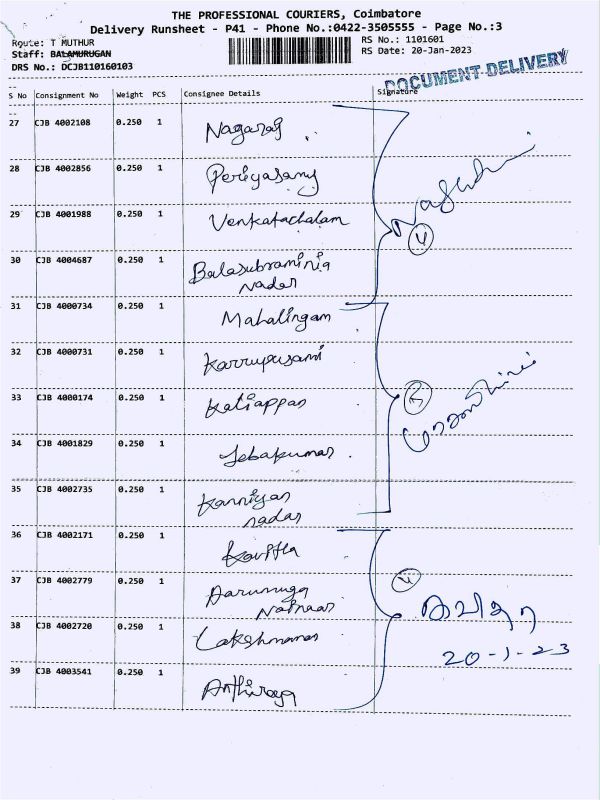 THE PROFESSIONAL COURIERS, Coimbatore
Delivery Runsheet - P41 - Phone No.:0422-3505555 - Page No.:3
Route: T MUTHUR
RS No.: 1101601
Staff: BALAMURUGAN
RS Date: 20-Jan-2023
DRS No.: DCJB110160103
DOCUMENT DELIVERY
S No Consignment No Weight PCS Consignee Details Signature
27 CJB 4002108 0.250 1 Nagaraj
28 CJB 4002856 0.250 1 Periyasamy
29 CJB 4001988 0.250 1 Venkatachalam
(4)
30 CJB 4004687 0.250 1 Balasubraminia
Nadar
31 CJB 4000734 0.250 1 Mahalingam
32 CJB 4000731 0.250 1 Karrupusami
33 CJB 4000174 0.250 1 Kaliappan
(5)
34 CJB 4001829 0.250 1 Jebakumar
35 CJB 4002735 0.250 1 Kanniyan
nadar
36 CJB 4002171 0.250 1 Kavitha
37 CJB 4002779 0.250 1 Aarumuga
(4)
38 CJB 4002720 0.250 1 Lakshmanan
20-1-23
39 CJB 4003541 0.250 1